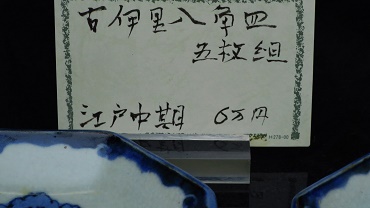 古伊里八角皿
五枚組
江戸中期 6万円